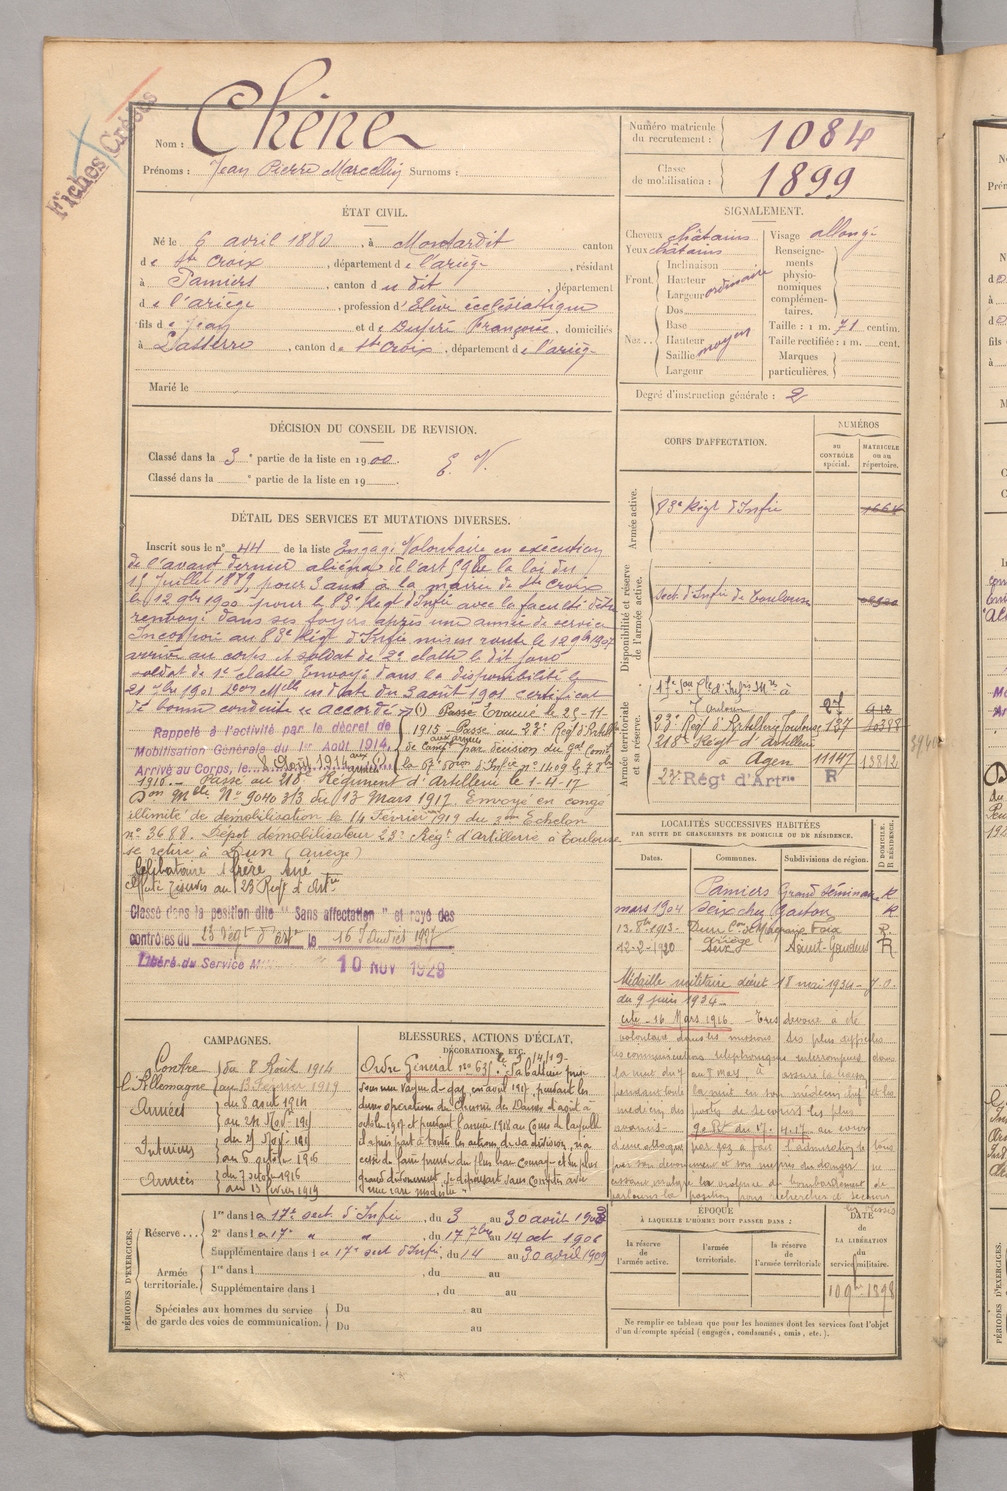 Fiches Croisés
Nom : Chêne
Prénoms : Jean Pierre Marcellin Surnoms :
Numéro matricule du recrutement : 1084
Classe de mobilisation : 1899
ÉTAT CIVIL.
Né le 6 avril 1880, à Montardit canton
de Ste Croix, département de l'ariège, résidant
à Pamiers, canton du dit, département
de l'ariège, profession d'Elève écclésiastique
fils de Jean et de Françoise, domiciliés
à Lasserre, canton de Ste Croix, département de l'ariège
Marié le
SIGNALEMENT.
Cheveux châtains Visage allongé
Yeux châtains
Front. Inclinaison Hauteur Largeur ordinaire
Nez.. Dos Base Hauteur Saillie Largeur moyen
Renseignements physionomiques complémentaires.
Taille : 1 m. 71 centim.
Taille rectifiée : 1 m. cent.
Marques particulières.
Degré d'instruction générale : 2
DÉCISION DU CONSEIL DE REVISION.
Classé dans la 3e partie de la liste en 1900. E. V.
Classé dans la e partie de la liste en 19
DÉTAIL DES SERVICES ET MUTATIONS DIVERSES.
Inscrit sous le n° 44 de la liste Engagé Volontaire en exécution
de l'avant dernier alinéa de l'art 59 de la loi du
15 Juillet 1889, pour 3 ans à la mairie de Ste Croix
le 12 9bre 1900 pour le 83e Régt d'Infie avec la faculté d'être
renvoyé dans ses foyers après une année de service
Incorporé au 83e Régt d'Infie mis en route le 12 9bre
arrivé au corps et soldat de 2e classe le dit jour
soldat de 1e classe Envoyé dans la disponibilité le
21 7bre 1901 en date du 3 août 1901 certificat
de bonne conduite accordé (1) Passé Evacué le 25-11-
Rappelé à l'activité par le décret de
Mobilisation Générale du 1er Août 1914.
Arrivé au Corps, le 8 Août 1914
1915 Passé au 23e Régt d'Artillie
de Camp par décision du gal Comt
la 67e Don d'Infie n° 1409 le 7 8bre
1916 Passé au 218e Régiment d'Artillerie le 1-4-17
Don Mlle N° 9040 3/3 du 13 Mars 1917. Envoyé en congé
illimité de démobilisation le 14 Février 1919 du 3eme Echelon
n° 3688. Dépot démobilisateur 23e Régt d'artillerie à Toulouse
se retire à Dun (Ariège)
Célibataire 1 frère tué
Affecté réserves au 23 Regt d'Artie
Classé dans la position dite "Sans affectation" et rayé des
contrôles du 23 Régt d'arte le 16 Janvier 1927
Libéré du Service 10 NOV 1929
CORPS D'AFFECTATION.
NUMÉROS
au CONTRÔLE spécial.
MATRICULE ou au répertoire.
Armée active.
83e Régt d'Infie
Disponibilité et réserve de l'armée active.
Sect. d'Infie de Toulouse
Armée territoriale et sa réserve.
17e d'Infirs Mres à Toulouse 27
23e Rég d'Artillerie Toulouse 137
218e Régt d'Artillerie
à Agen 11147 13812
23e Régt d'Artie R
LOCALITÉS SUCCESSIVES HABITÉES
PAR SUITE DE CHANGEMENTS DE DOMICILE OU DE RÉSIDENCE.
Dates. Communes. Subdivisions de région. D DOMICILE. R RÉSIDENCE.
Pamiers Grand Séminaire R
mars 1904 Seix chez Gaston R
13.8bre 1913 Dun Foix R
12-2-1920 Seix Saint-Gaudens R
Médaille militaire décret 18 mai 1934 - J.O.
du 9 juin 1934 -
cité - 16 Mars 1916 - Très dévoué a été
volontaire dans les missions les plus
les communications téléphoniques interrompues dans
la nuit du 7 au 8 mars, a assuré la liaison
pendant toute la nuit en son médecin chef et les
médecins des postes de secours les plus
avancés - 17.4.17. au cours
d'une attaque par gaz a fait l'admiration de tous
par son dévouement et son mépris du danger ne
cessant malgré la violence du bombardement de
parcourir la position pour rechercher et secourir
les blessés
CAMPAGNES.
Contre l'Allemagne du 8 Août 1914 au 13 Février 1919
Armées du 8 août 1914 au 24 Novre 1915
Intérieur du 25 Nov. 1915 au 6 octobre 1916
Armées du 7 octobre 1916 au 13 février 1919
BLESSURES, ACTIONS D'ÉCLAT, DÉCORATIONS, ETC.
Ordre Général n° 63
sous une vague de gaz, en avril 1917, pendant les
dures opérations du Chemin des Dames d'août à
octobre 1917 et pendant l'année 1918 au cours de laquelle
il a pris part à toutes les actions de sa division, n'a
cessé de faire preuve du plus beau courage et du plus
grand dévouement, se dépensant sans compter avec
une rare modestie
PÉRIODES D'EXERCICES.
Réserve... 1re dans la 17e sect d'Infie, du 3 au 30 août 190
2e dans la 17e " ", du 17 7bre au 14 oct 1906
Supplémentaire dans la 17e sect d'Infi, du 14 au 30 avril 1909
Armée territoriale. 1re dans l, du au
Supplémentaire dans l, du au
Spéciales aux hommes du service de garde des voies de communication. Du au
Du au
ÉPOQUE
À LAQUELLE L'HOMME DOIT PASSER DANS :
la réserve de l'armée active. l'armée territoriale. la réserve de l'armée territoriale
DATE DE LA LIBÉRATION du service militaire.
Ne remplir ce tableau que pour les hommes dont les services font l'objet
d'un décompte spécial (engagés, condamnés, omis, etc.).